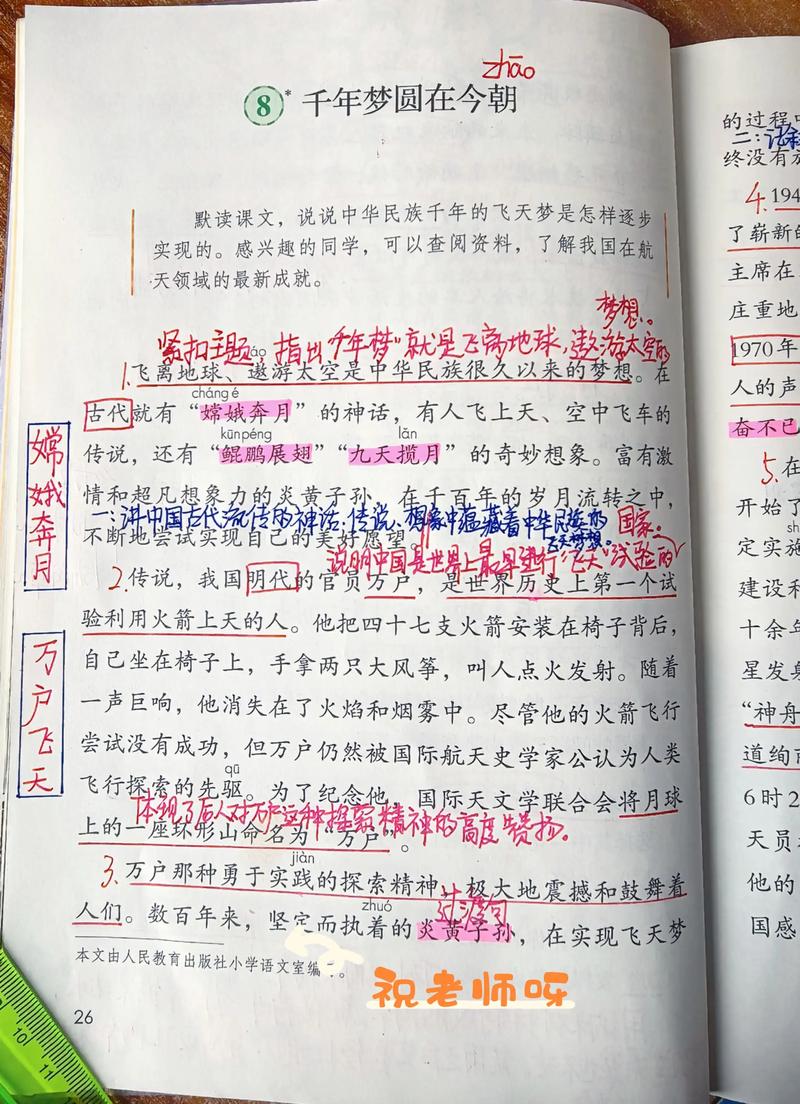 zhāo
8* 千年梦圆在今朝
默读课文，说说中华民族千年的飞天梦是怎样逐步
实现的。感兴趣的同学，可以查阅资料，了解我国在航
天领域的最新成就。
梦想。
紧扣主题，指出“千年梦”就是飞离地球、遨游太空的
áo
1.飞离地球、遨游太空是中华民族很久以来的梦想。在
cháng é
古代就有“嫦娥奔月”的神话，有人飞上天、空中飞车的
kūnpéng lǎn
传说，还有“鲲鹏展翅”“九天揽月”的奇妙想象。富有激
情和超凡想象力的炎黄子孙，在千百年的岁月流转之中，
一：讲中国古代流传的神话、传说、想象中蕴藏着中华民族的
飞天梦想。
国家。
不断地尝试实现自己的美好愿望
说明中国是世界上最早进行“飞天”试验的
2.传说，我国明代的官员万户，是世界历史上第一个试
验利用火箭上天的人。他把四十七支火箭安装在椅子背后，
自己坐在椅子上，手拿两只大风筝，叫人点火发射。随着
一声巨响，他消失在了火焰和烟雾中。尽管他的火箭飞行
尝试没有成功，但万户仍然被国际航天史学家公认为人类
qū
飞行探索的先驱。为了纪念他，国际天文学联合会将月球
体现了后人对万户这种探索精神的高度赞扬。
上的一座环形山命名为“万户”。
jiàn
3.万户那种勇于实践的探索精神，极大地震撼和鼓舞着
过渡句
zhuó
人们。数百年来，坚定而执着的炎黄子孙，在实现飞天梦
本文由人民教育出版社小学语文室编
。
祝老师呀
26
嫦娥奔月
万户飞天
11
10
的过程
二：
终没有
4.194
了崭新的
主席在
庄重地
1970年
人的声
奋不已
5.在
开始了
定实施
建设和
十余年
星发身
“神舟
道绚
6时2
天员
他的
国感